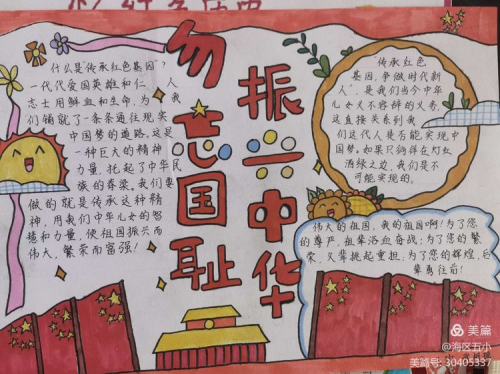 勿忘国耻
振兴中华
什么是"传承红色
基因"?
一代代爱国英雄和仁人
志士用鲜血和生命,为我
们铺就了一条条通往现实
中国梦的道路。这是
一种巨大的精神
力量,托起了中华民
族的脊梁。我们要
做的就是传承这种精
神,用我们中华儿女的智
慧和力量,使祖国振兴而
伟大,繁荣而富强!
"传承红色
基因,争做时代新
人",是我们当今中华
儿女义不容辞的义务,
这直接关系到我
们这代人是否能实现中
国梦。如果只徜徉在灯红
酒绿之边,我们是不
可能实现的。
伟大的祖国,我的祖国啊!为了您
的尊严,祖辈浴血奋战;为了您的繁
荣,父辈挑起重担,为了您的辉煌,后
辈勇往后!
美篇
@海区五小
美篇号: 30405337